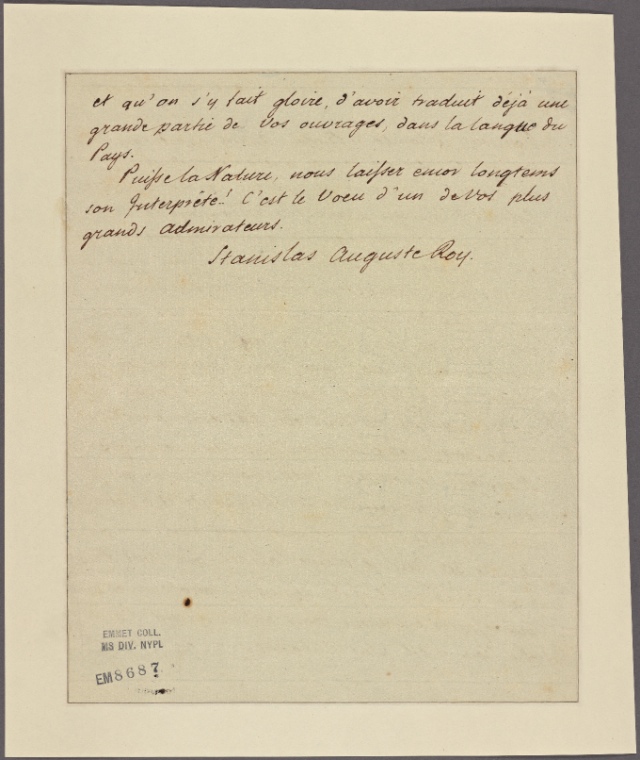 et qu'on s'y fait gloire, d'avoir traduit déjà une
grande partie de vos ouvrages, dans la langue du
Pays.
Puisse la Nature, nous laisser encor longtems
son Interprête! C'est le Voeu d'un de Vos plus
grands admirateurs.
Stanislas Auguste Roy.
EMMET COLL.
MS DIV. NYPL
EM8687